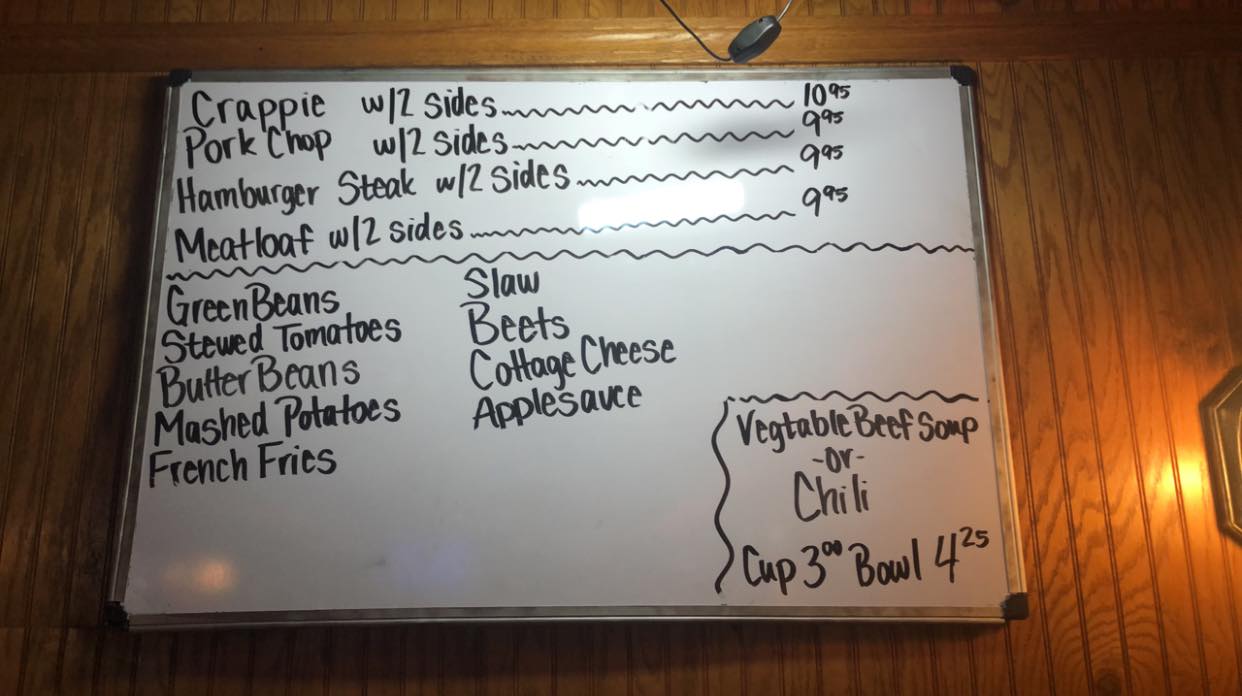 Crappie w/2 sides 10.95
Pork Chop w/2 sides 9.95
Hamburger Steak w/2 sides 9.95
Meatloaf w/2 sides 9.95
Green Beans
Stewed Tomatoes
Butter Beans
Mashed Potatoes
French Fries
Slaw
Beets
Cottage Cheese
Applesauce
Vegtable Beef Soup
-or-
Chili
Cup 3.00 Bowl 4.25